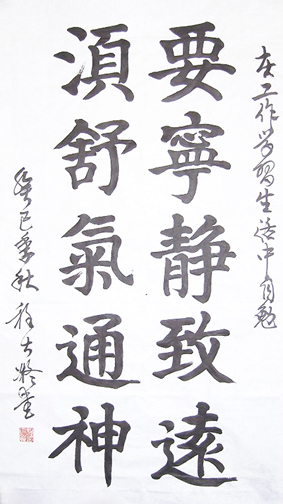 在工作学習生活中自勉
要寧静致遠
湏舒氣通神
癸巳季秋